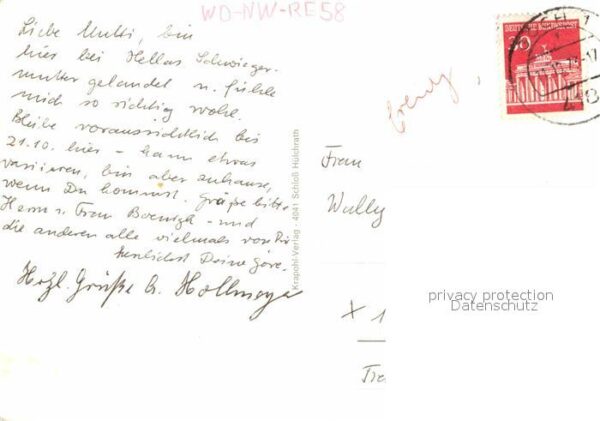 WO-NW-RE58
Liebe Mutti, bin
hier bei Hellas Schwieger-
mutter gelandet u. fühle
mich so richtig wohl.
Bleibe voraussichtlich bis
21.10. hier - kann etwas
variieren, bin aber zuhause,
wenn Du kommst. Grüße bitte
Herrn u. Frau - und
die anderen alle vielmals von
Deine Göre.
Herzl. Grüße
Krapohl-Verlag - 4041 Schloß Hülchrath
DEUTSCHE BUNDESPOST
30
Frau
Wully
privacy protection
Datenschutz